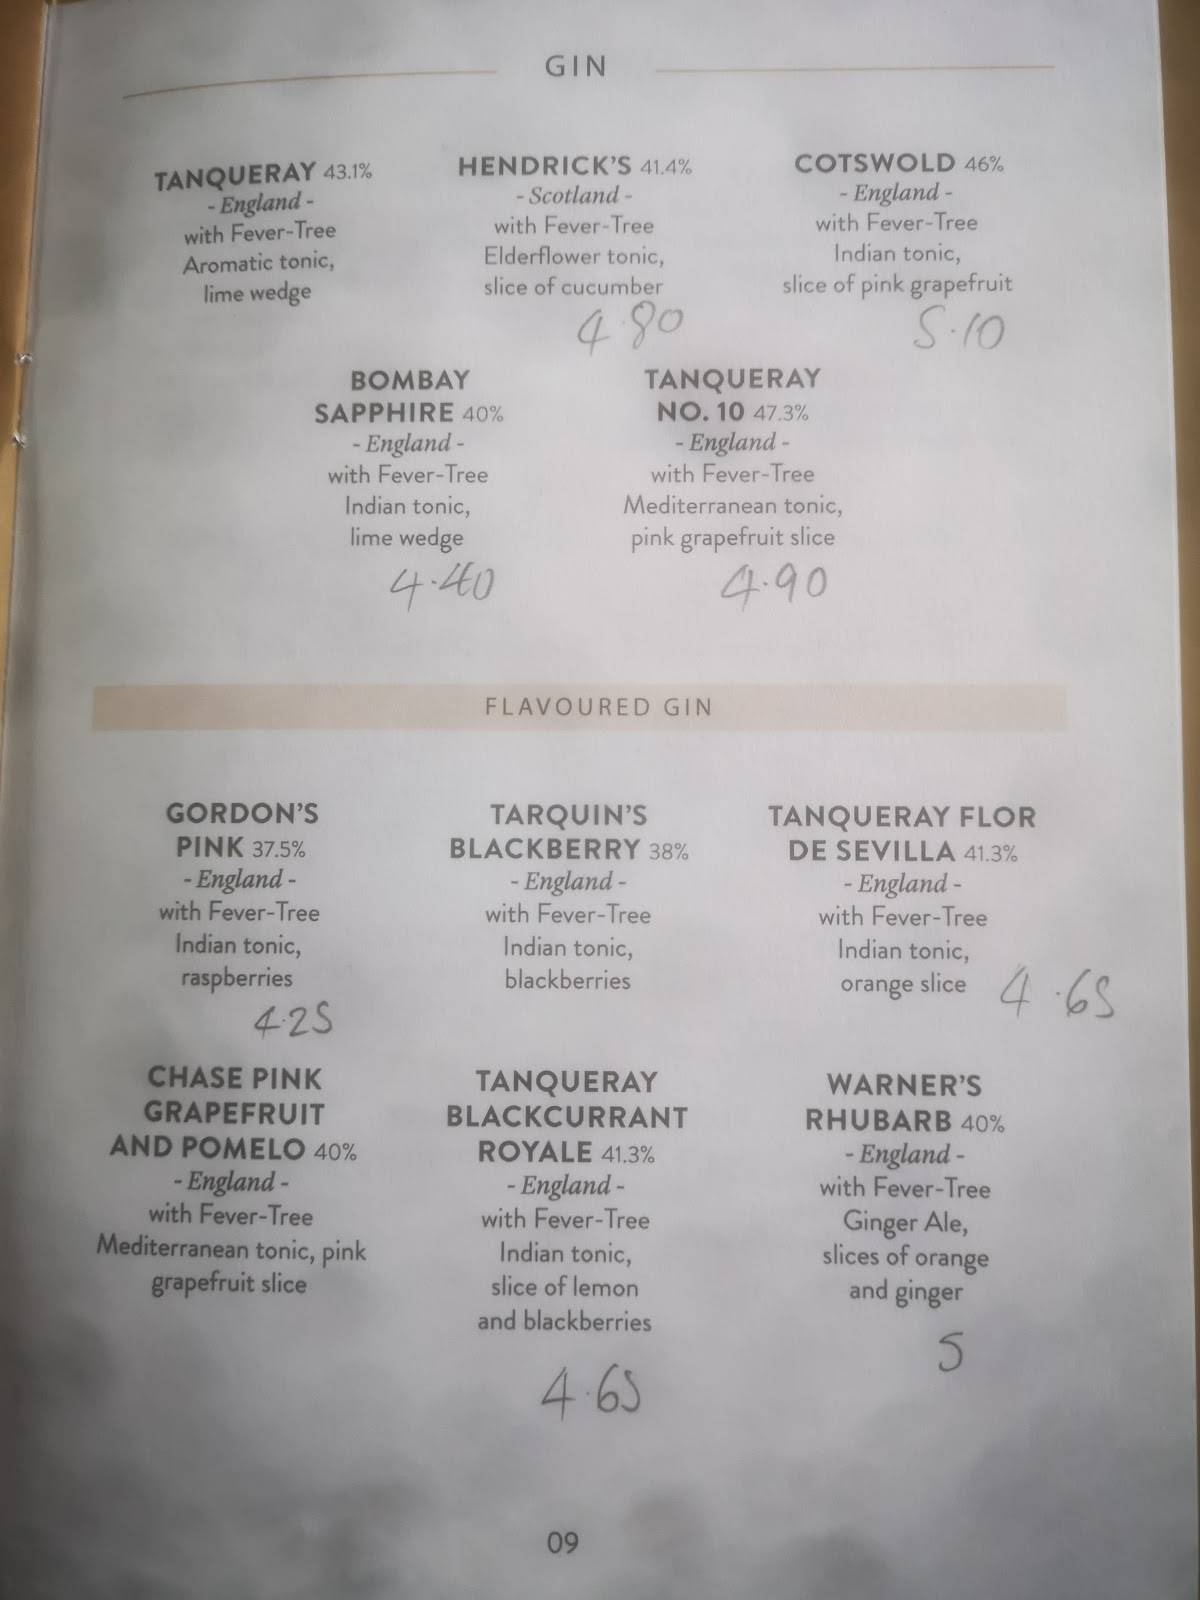 GIN
TANQUERAY 43.1%
- England -
with Fever-Tree
Aromatic tonic,
lime wedge
HENDRICK'S 41.4%
- Scotland -
with Fever-Tree
Elderflower tonic,
slice of cucumber
4.80
COTSWOLD 46%
- England -
with Fever-Tree
Indian tonic,
slice of pink grapefruit
5.10
BOMBAY
SAPPHIRE 40%
- England -
with Fever-Tree
Indian tonic,
lime wedge
4.40
TANQUERAY
NO. 10 47.3%
- England -
with Fever-Tree
Mediterranean tonic,
pink grapefruit slice
4.90
FLAVOURED GIN
GORDON'S
PINK 37.5%
- England -
with Fever-Tree
Indian tonic,
raspberries
4.25
TARQUIN'S
BLACKBERRY 38%
- England -
with Fever-Tree
Indian tonic,
blackberries
TANQUERAY FLOR
DE SEVILLA 41.3%
- England -
with Fever-Tree
Indian tonic,
orange slice
4.65
CHASE PINK
GRAPEFRUIT
AND POMELO 40%
- England -
with Fever-Tree
Mediterranean tonic, pink
grapefruit slice
TANQUERAY
BLACKCURRANT
ROYALE 41.3%
- England -
with Fever-Tree
Indian tonic,
slice of lemon
and blackberries
4.65
WARNER'S
RHUBARB 40%
- England -
with Fever-Tree
Ginger Ale,
slices of orange
and ginger
5
09